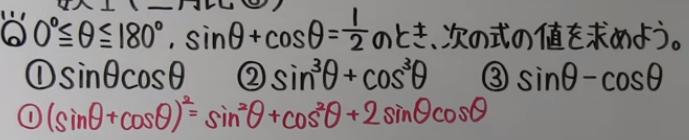 0°≦θ≦180°, sinθ+cosθ=1/2のとき、次の式の値を求めよう。
①sinθcosθ ②sin³θ+cos³θ ③sinθ-cosθ
①(sinθ+cosθ)²=sin²θ+cos²θ+2sinθcosθ